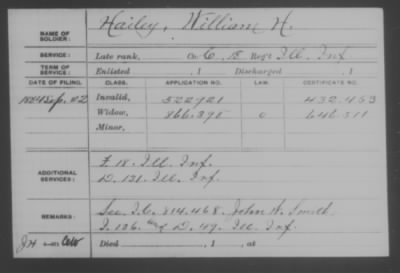 NAME OF SOLDIER: Hailey, William H.
SERVICE: Late rank, Co. C, 18 Reg't Ill. Inf.
TERM OF SERVICE: Enlisted , 1 Discharged , 1
DATE OF FILING. CLASS. APPLICATION NO. LAW. CERTIFICATE NO.
Invalid, 522721 432.463
Widow, 866.395 646.511
Minor,
ADDITIONAL SERVICES: F. 18. Ill. Inf.
D. 131. Ill. Inf.
REMARKS: See I.C. 814.468. John H. Smith,
D. 49. Ill. Inf.
Died , 1 , at